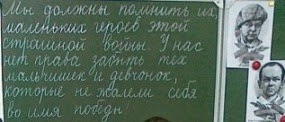 Мы должны помнить их,
маленьких героев этой
страшной войны. У нас
нет права забыть тех
мальчишек и девчонок,
которые не жалели себя
во имя победы!